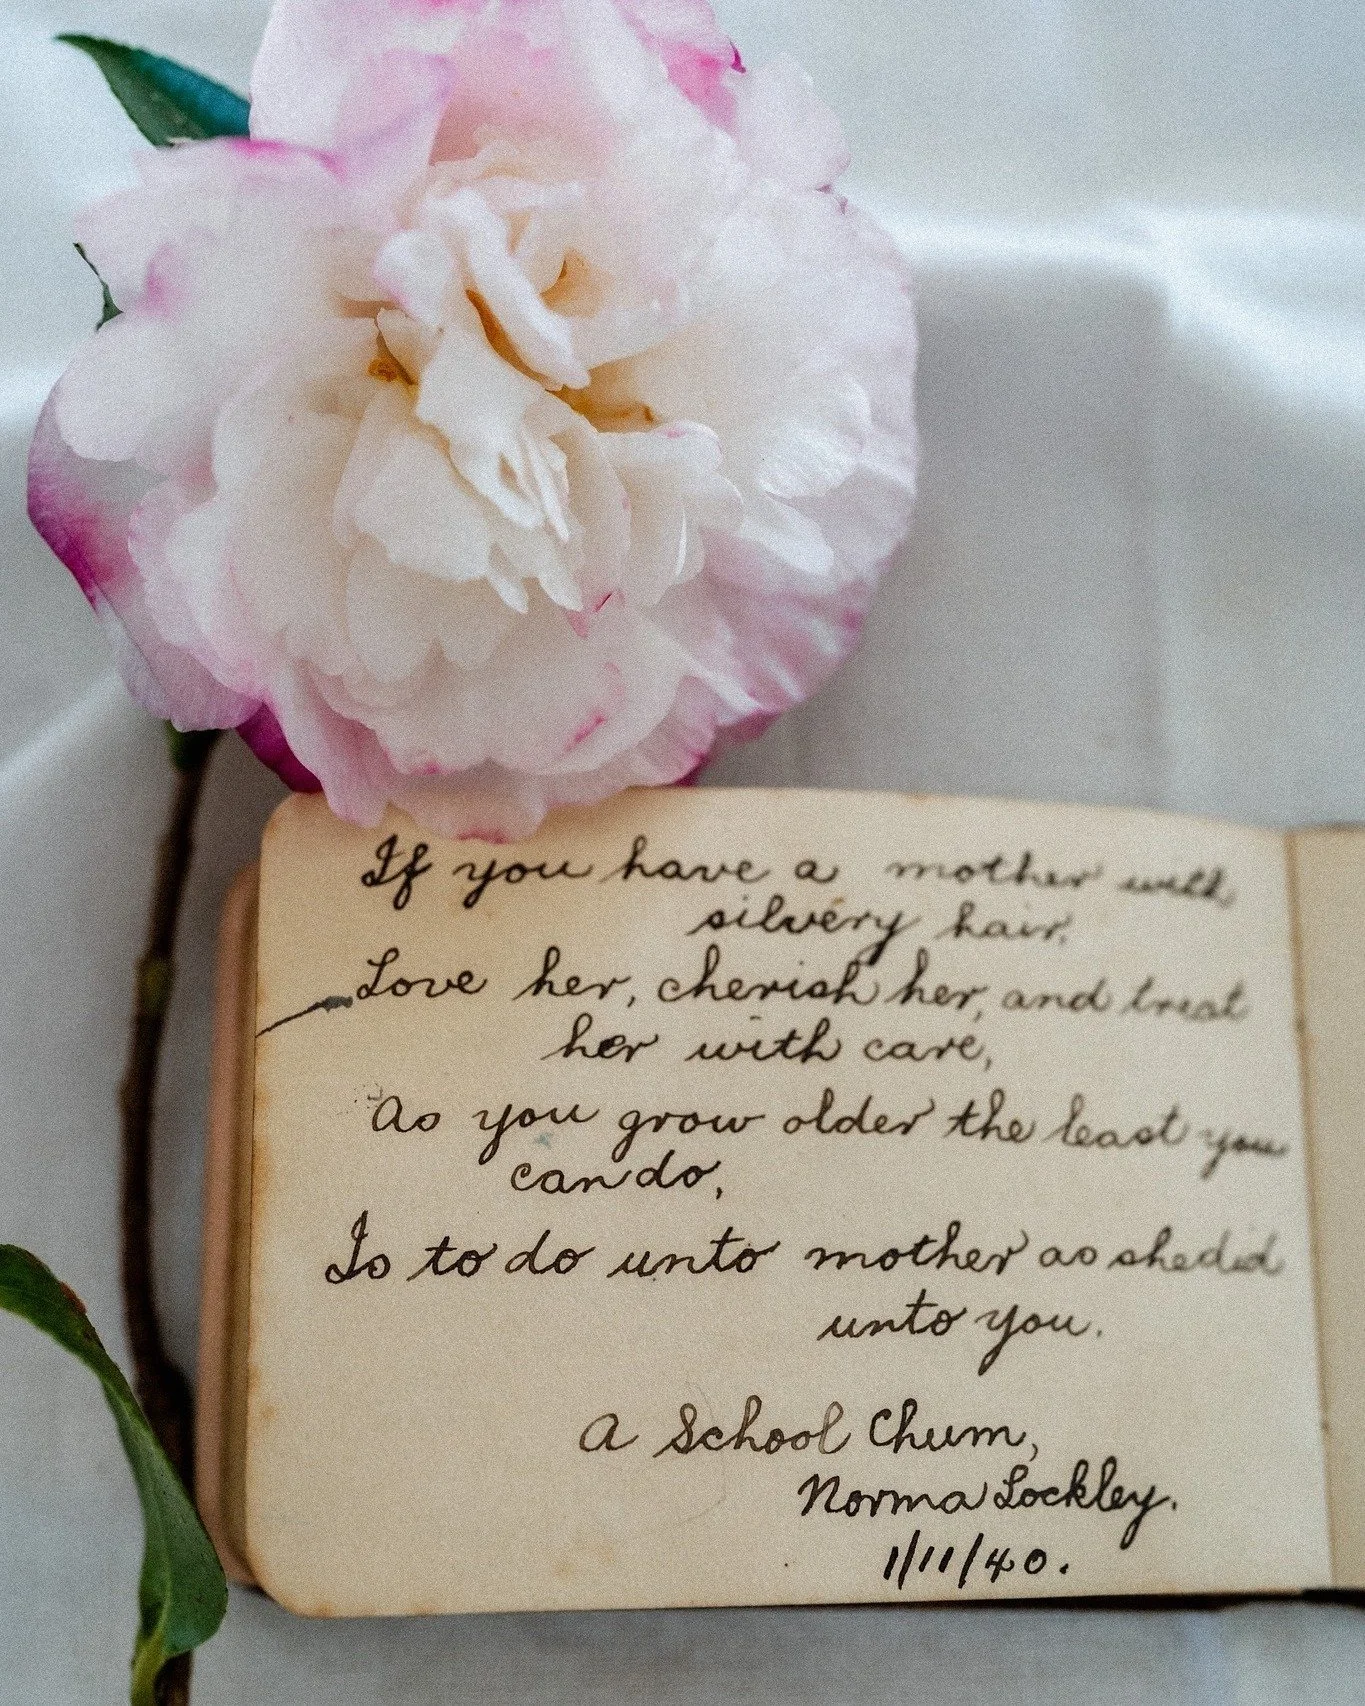 If you have a mother with
silvery hair,
Love her, cherish her, and treat
her with care,
As you grow older the least you
can do,
Is to do unto mother as she did
unto you.
A School Chum,
Norma Lockley.
1/11/40.